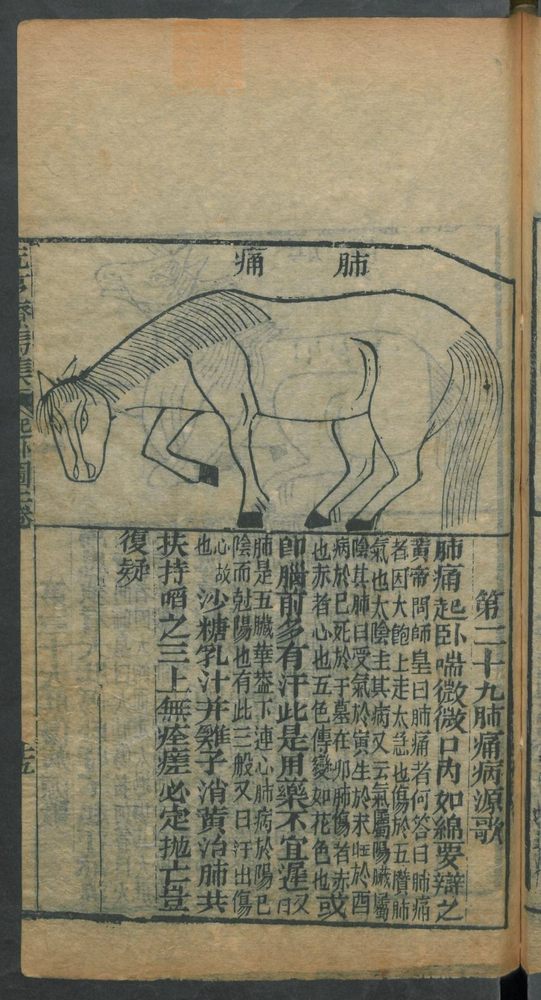 肺痛
第二十九肺痛病源歌
肺痛起卧喘微微口內如綿要辯之
黃帝問師皇曰肺痛者何答曰肺痛
者因大飽上走太急也傷於五臟肺
氣也太陰主其病又云氣屬陽臟屬
陰其肺曰受氣於寅生於未旺於酉
病於巳死於于墓在卯肺傷者赤
也赤者心也五色傳變如花色也或
即腦前多有汗此是用藥不宜遲又曰
肺是五臟華蓋下連心肺病於陽巳
陰而尅陽也有此三般又曰汗出傷
心故也
沙糖乳汁并雞子消黃治肺共
扶持啗之三上無痊瘥必定拋亡豈
復疑